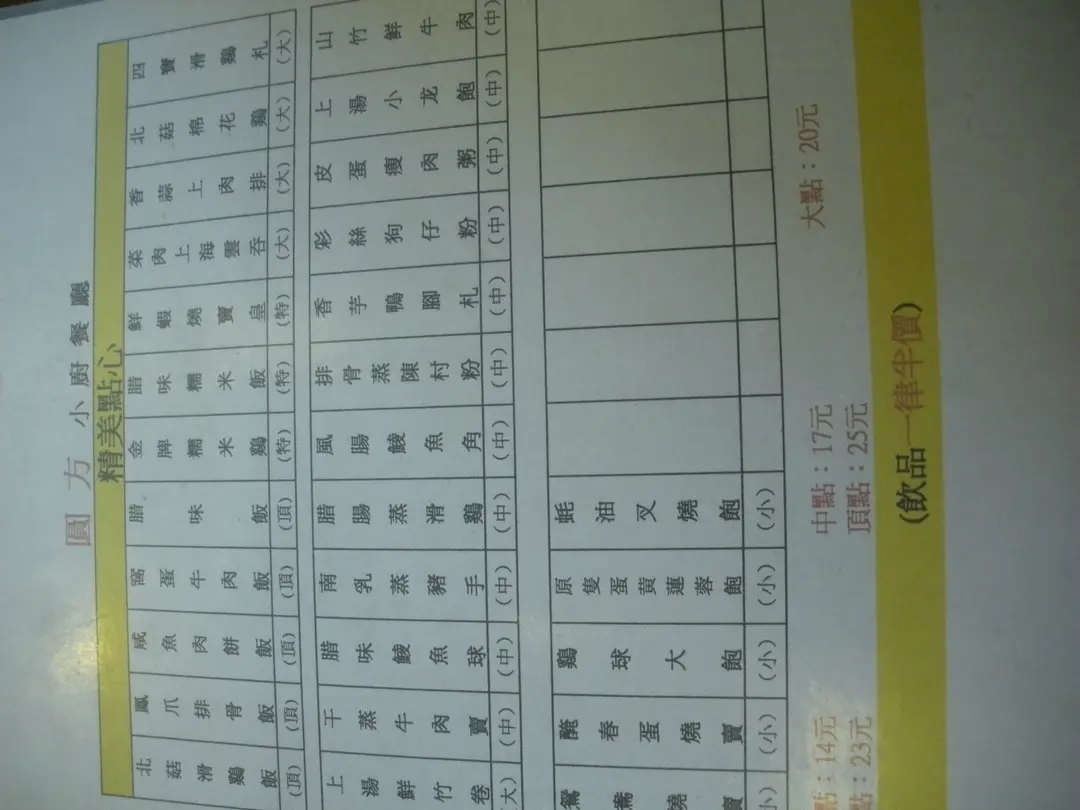 圓方小廚餐廳
精美點心
四寶滑鷄札(大)
北菇棉花鷄(大)
香蒜上肉排(大)
菜肉上海雲吞(大)
鮮蝦燒賣皇(特)
腊味糯米飯(特)
金牌糯米鷄(特)
腊味飯(頂)
窩蛋牛肉飯(頂)
咸魚肉餅飯(頂)
鳳爪排骨飯(頂)
北菇滑鷄飯(頂)
山竹鮮牛肉(中)
上湯小龙飽(中)
皮蛋瘦肉粥(中)
彩絲狗仔粉(中)
香芋鴨腳札(中)
排骨蒸陳村粉(中)
風腸鯪魚角(中)
腊腸蒸滑鷄(中)
南乳蒸豬手(中)
腊味鯪魚球(中)
干蒸牛肉賣(中)
上湯鮮竹卷(大)
蚝油叉燒飽(小)
原隻蛋黃蓮蓉飽(小)
鷄球大飽(小)
醃春蛋燒賣(小)
鴛鴦燒賣(小)
點：14元 中點：17元 大點：20元
點：23元 頂點：25元
(飲品一律半價)